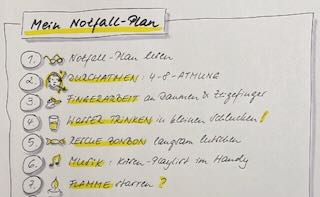 Mein Notfall-Plan
1. Notfall-Plan lesen
2. DURCHATMEN: 4-8-ATMUNG
3. FINGERARBEIT an Daumen & Zeigefinger
4. WASSER TRINKEN in kleinen Schlucken!
5. REICHE BONBON langsam lutschen
6. MUSIK: Karen-Playlist im Handy
7. FLAMME starren ?